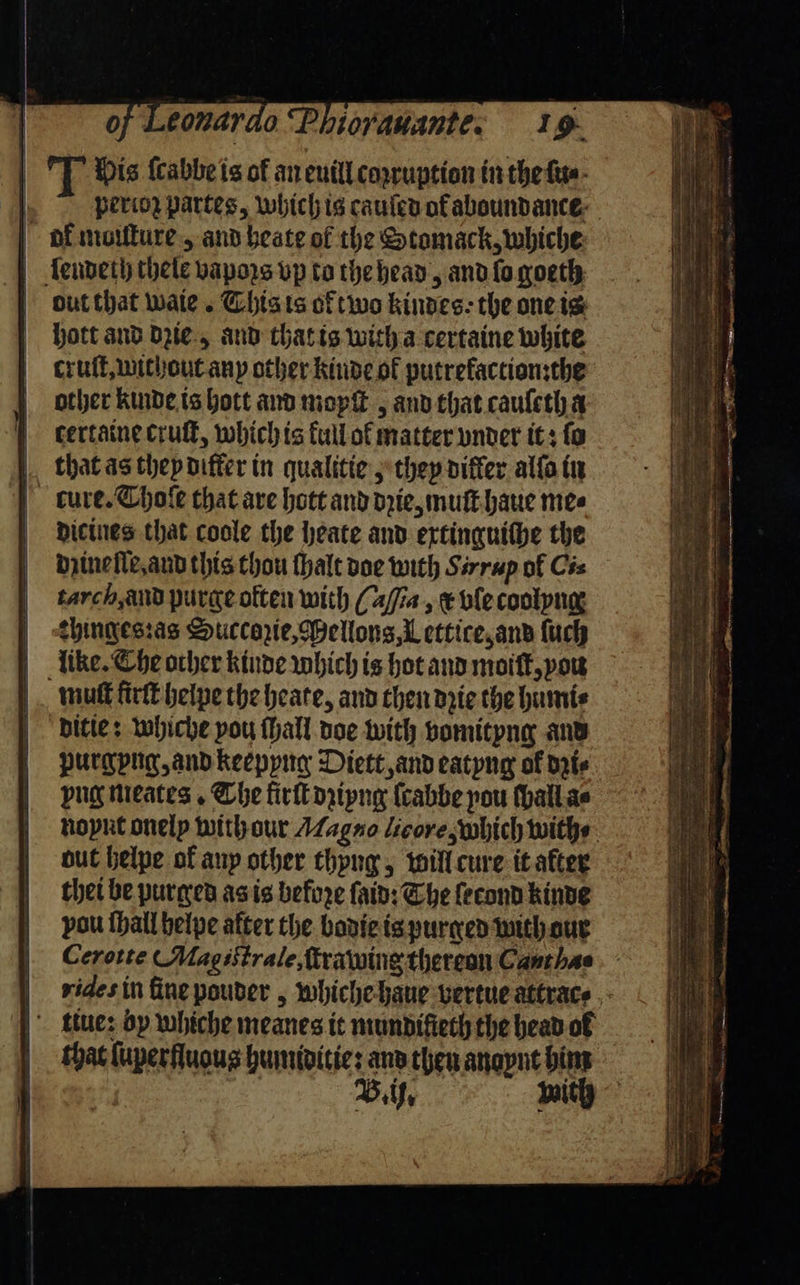 of Leonardo Phiorauante. 19.
THis ſcabbe is of an euill corruption in the ſu-
perior partes, which is cauſed of aboundance
of moiſture, and heate of the Stomack, whiche
ſendeth theſe vapors vp to the head, and ſo goeth
out that waie. This is of two kindes: the one is
hott and drie, and that is with a certaine white
cruſt, without any other kinde of putrefaction: the
other kinde is hott and moyſt, and that cauſeth a
certaine cruſt, which is full of matter vnder it: ſo
that as they differ in qualitie, they differ alſo in
cure. Thoſe that are hott and drie, muſt haue me-
dicines that coole the heate and extinguiſhe the
drineſſe, and this thou ſhalt doe with Sirrup of Cis
tarch, and purge often with Caſſia, & vſe coolyng
thinges: as Succorie, Mellons, Lettice, and ſuch
like. The other kinde which is hot and moiſt, you
muſt firſt helpe the heate, and then drie the humi-
ditie: whiche you ſhall doe with vomityng and
purgyng, and keepyng Diett, and eatyng of dri-
yng meates. The firſt driyng ſcabbe you ſhall a-
noynt onely with our Magno licore, which with-
out helpe of any other thyng, will cure it after
thei be purged as is before ſaid: The ſecond kinde
you ſhall helpe after the bodie is purged with our
Cerotte Magistrale, ſtrawing thereon Cantha-
rides in fine pouder, whiche haue vertue attrac-
tiue: by whiche meanes it mundifieth the head of
that ſuperfluous humiditie: and then anoynt him
B.ij. with